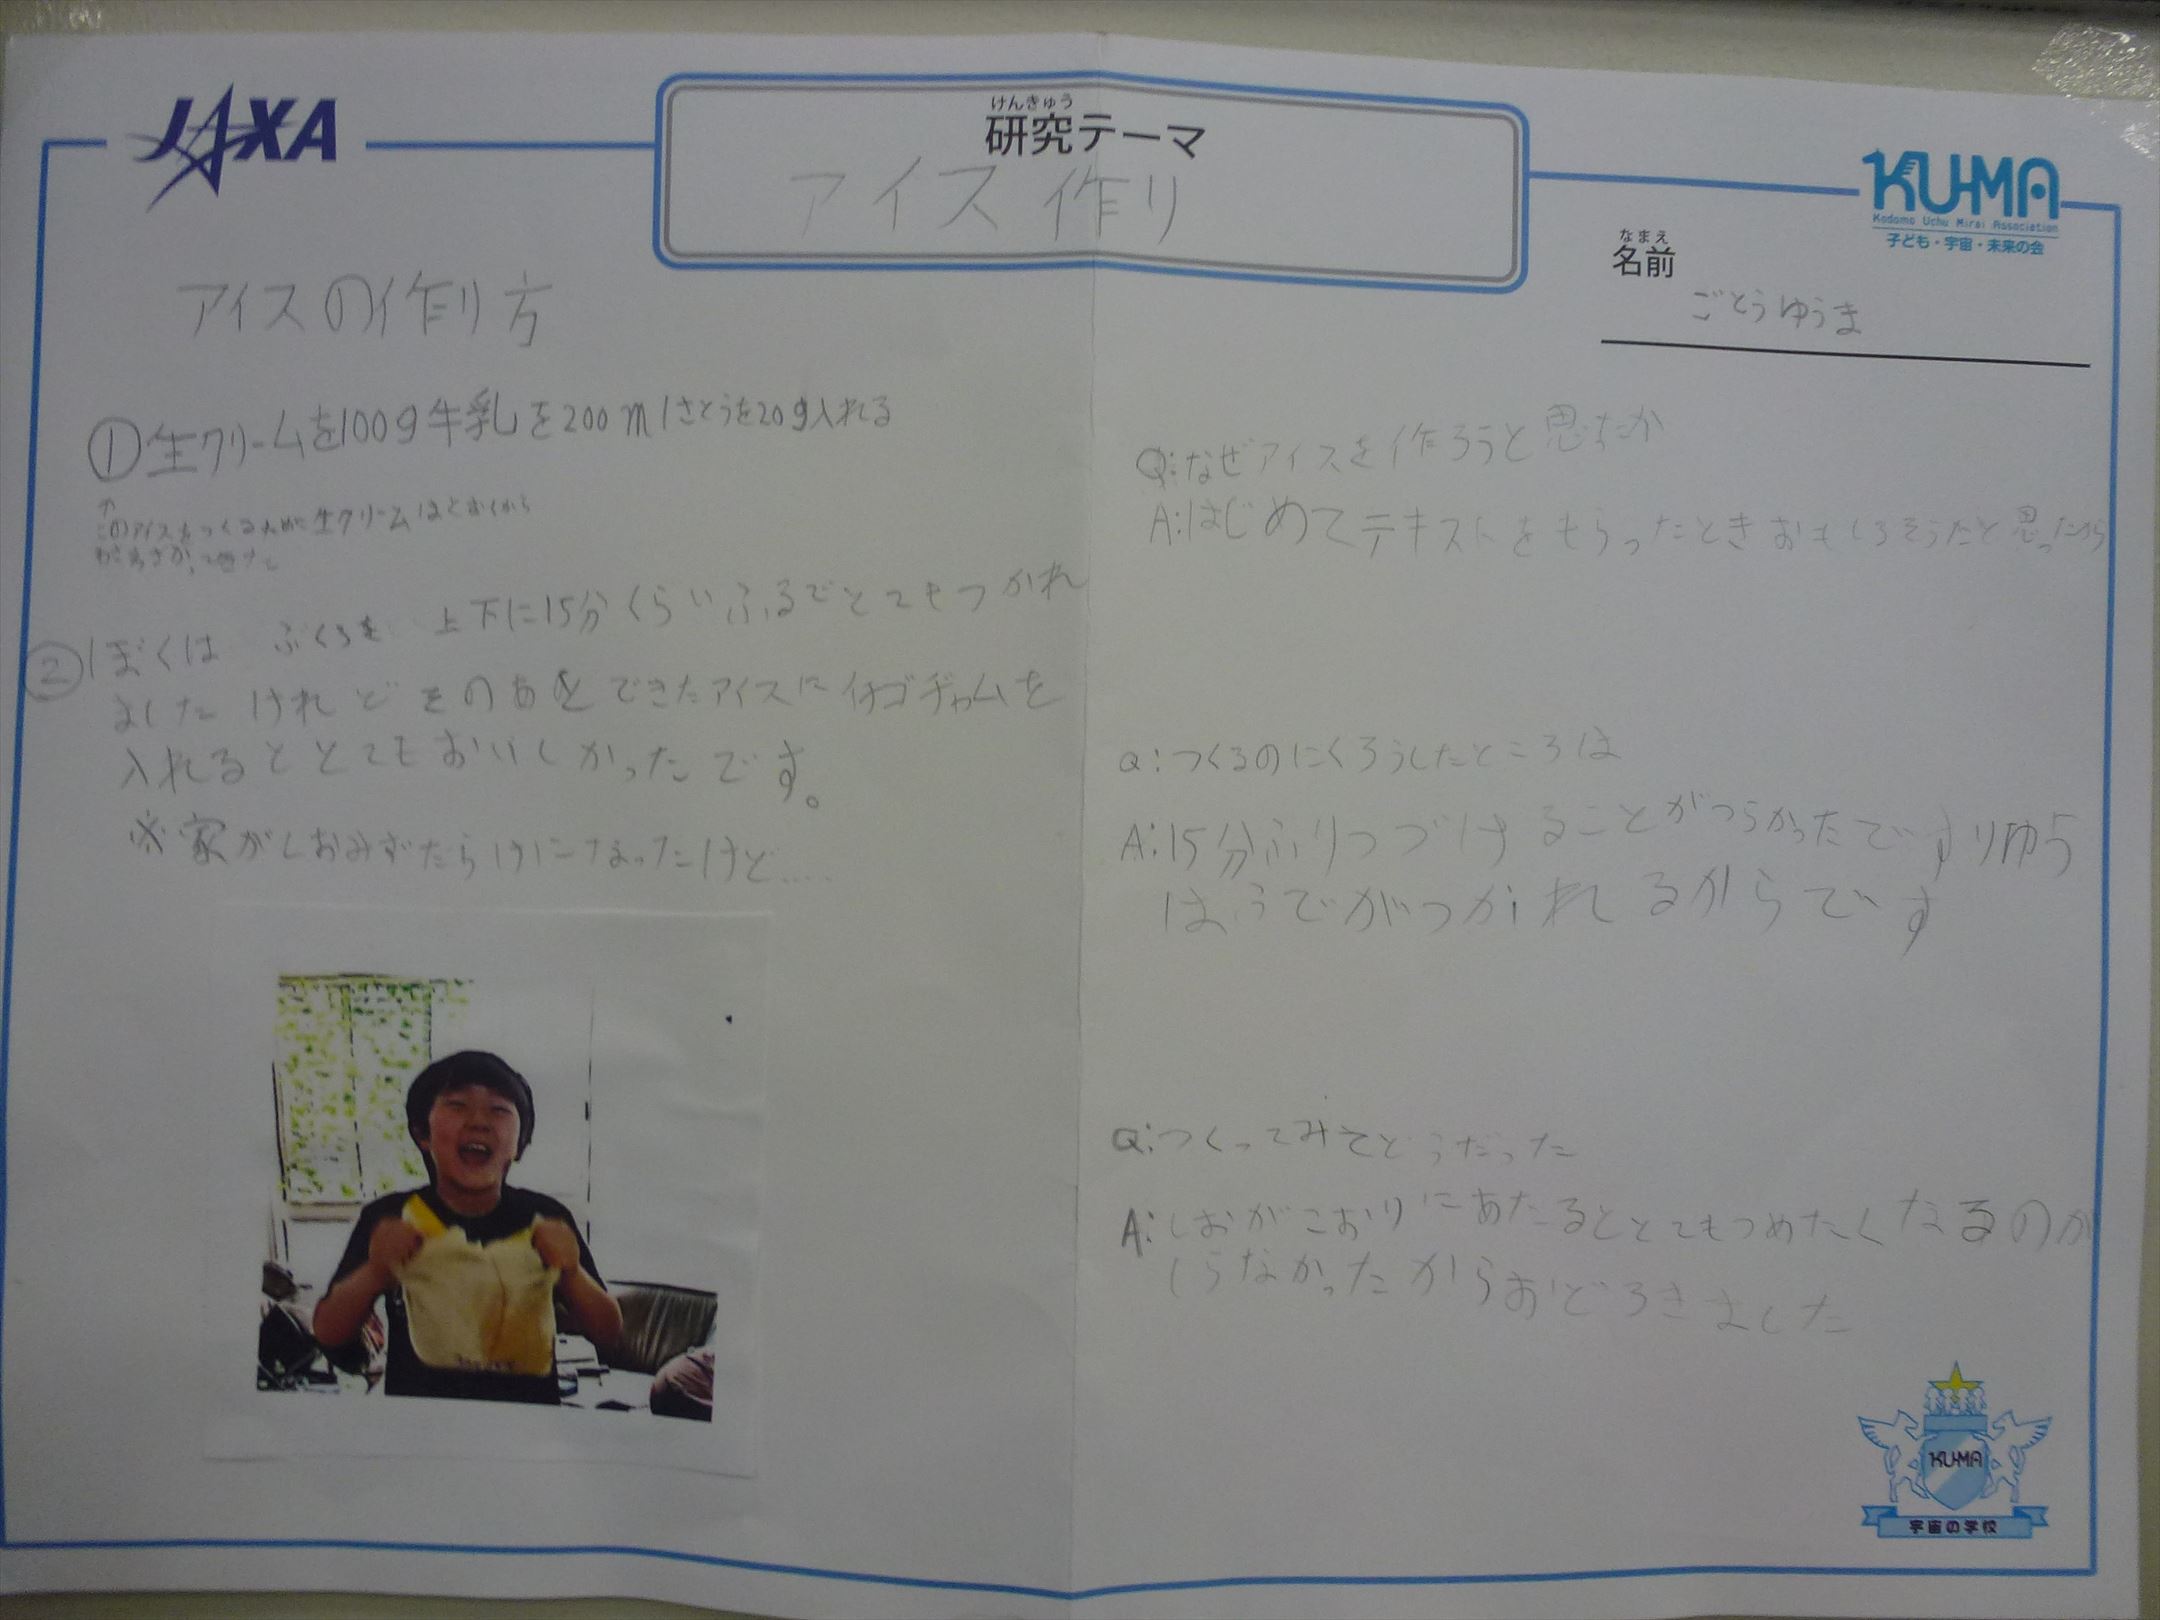 JAXA
けんきゅう
研究テーマ
アイス作り
KU-MA
Kodomo Uchu Mirai Association
子ども・宇宙・未来の会
なまえ
名前
ごとうゆうま
アイスの作り方
①生クリームを100g牛乳を200mlさとうを20g入れる
↑
このアイスをつくるために生クリームはとおくから
②ぼくは ふくろを 上下に15分くらいふるでとてもつかれ
ましたけれどそのあとできたアイスにイチゴヂャムを
入れるととてもおいしかったです。
※家がしおみずだらけになったけど....
Q:なぜアイスを作ろうと思たか
A:はじめてテキストをもらったときおもしろそうだと思ったから
Q:つくるのにくろうしたところは
A:15分ふりつづけることがつらかったですりゆう
はうでがつかれるからです
Q:つくってみてどうだった
A:しおがこおりにあたるととてもつめたくなるのが
しらなかったからおどろきました
KU-MA
宇宙の学校